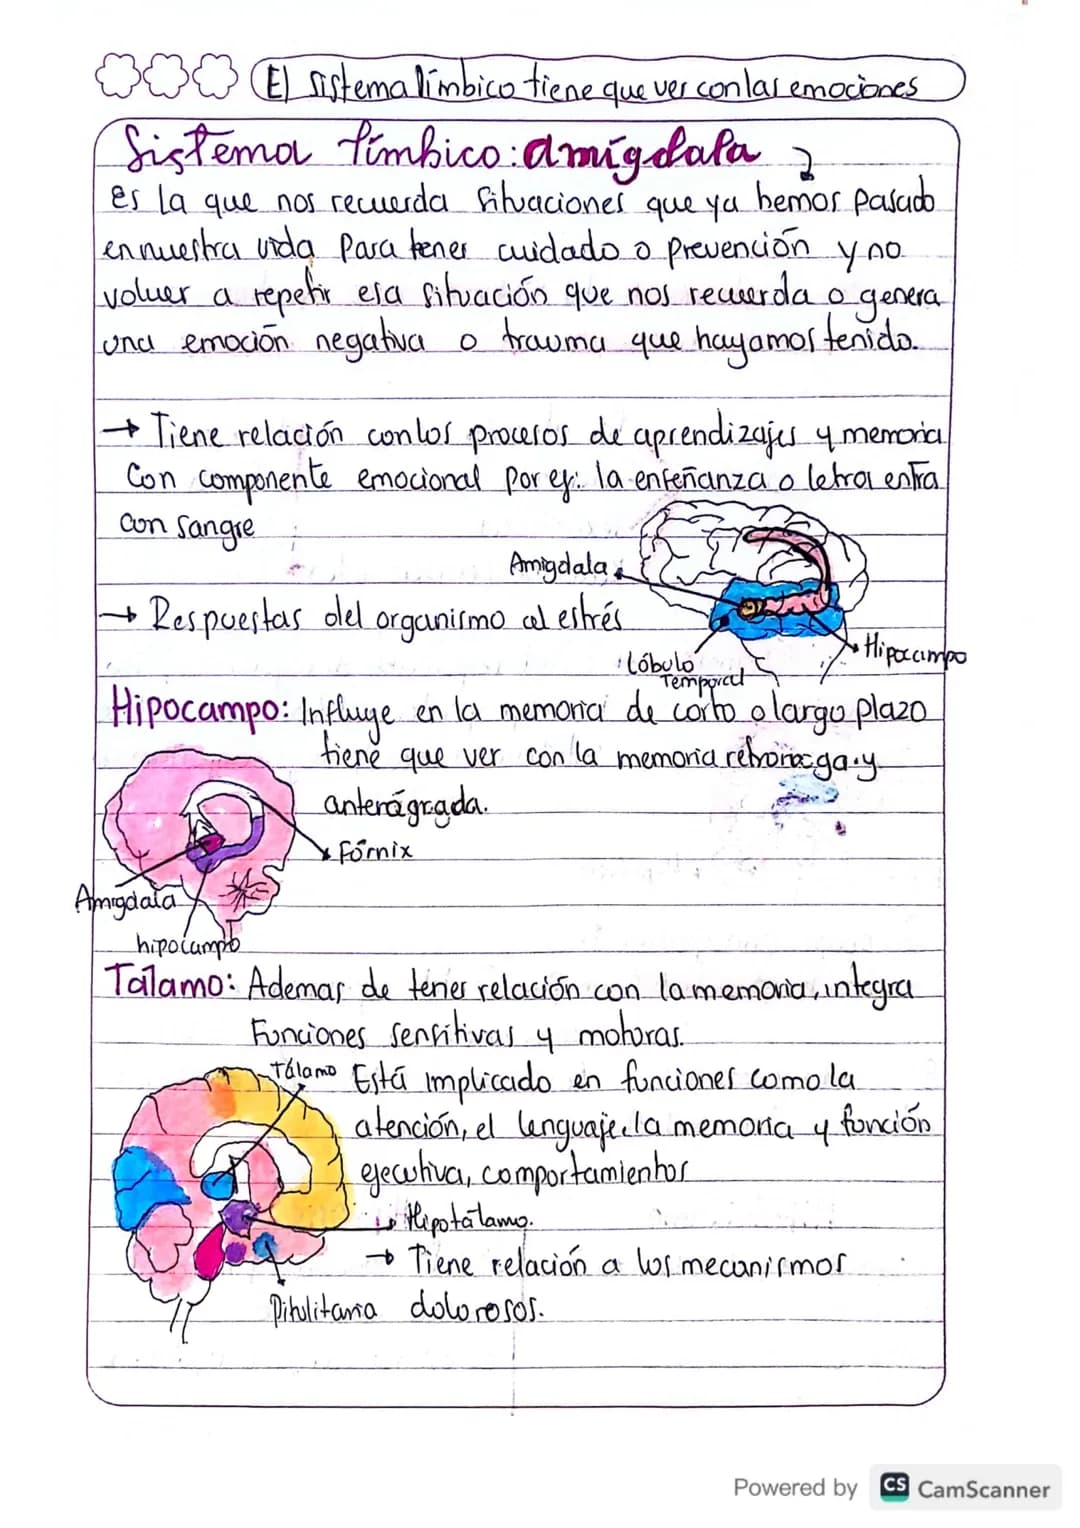 El sistema límbico tiene que ver con las emociones
Sistema límbico: amígdala
es la que nos recuerda situaciones que ya hemos pasado
en nuestra vida para tener cuidado o prevención y no
volver a repetir esa situación que nos recuerda o genera
una emoción negativa o trauma que hayamos tenido.
→ Tiene relación con los procesos de aprendizajes y memoria
Con componente emocional por ej: la enseñanza o letra entra
con sangre
Amigdala
→ Respuestas del organismo al estrés
Hipocampo
Lóbulo
Temporal
Hipocampo: Influye en la memoria de corto o largo plazo
tiene que ver con la memoria y
anterágrada.
Fórnix
Amigdala
hipocampo
Tálamo: Ademas de tener relación con la memoria, integra
Funciones sensitivas y motoras.
Tálamo
Está implicado en funciones como la
atención, el lenguaje, la memoria y función
ejecutiva, comportamientos
Hipotálamo.
→ Tiene relación a los mecanismos
Pitulitaria dolorosos.
Powered by CS CamScanner